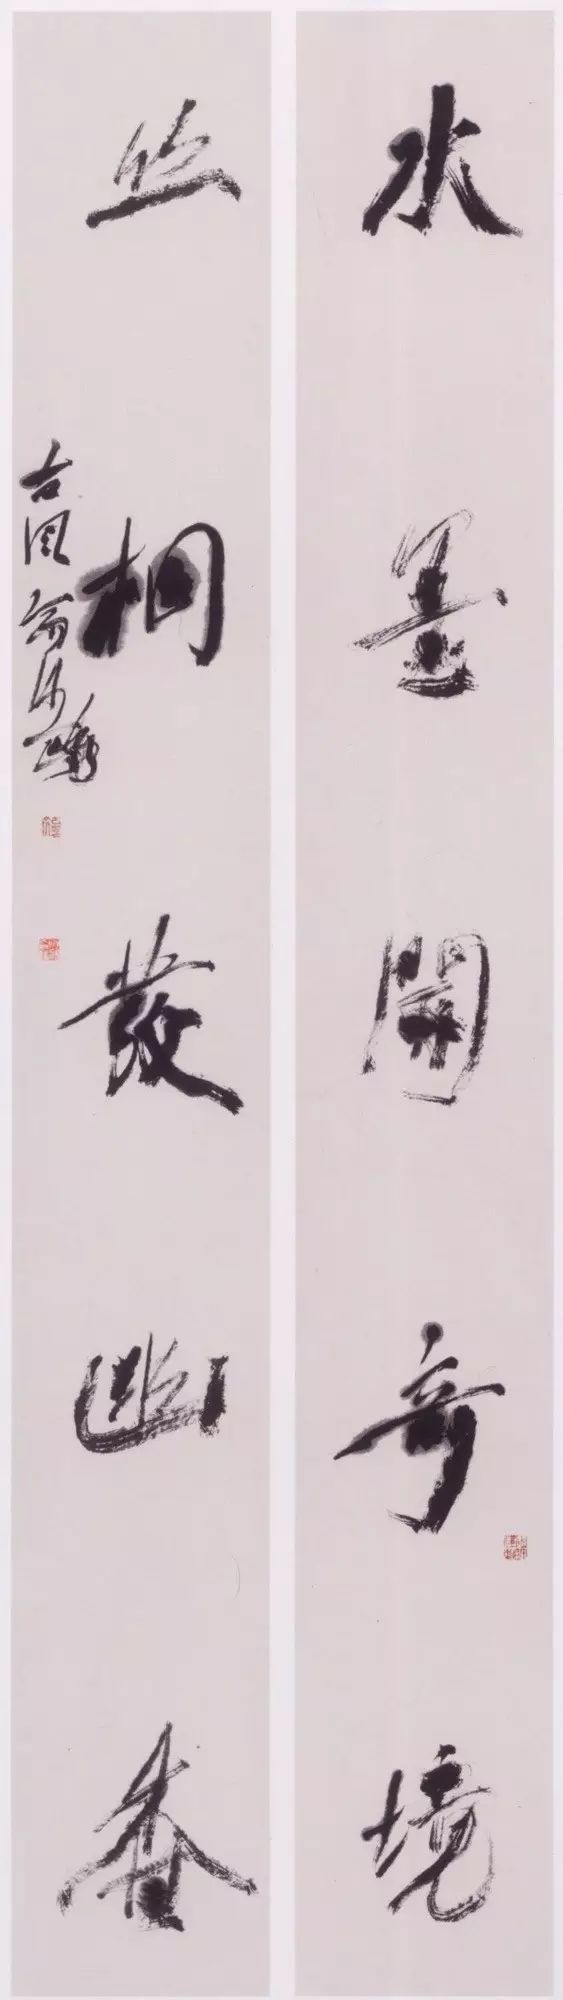 水墨開奇境
丝桐發幽香
古风